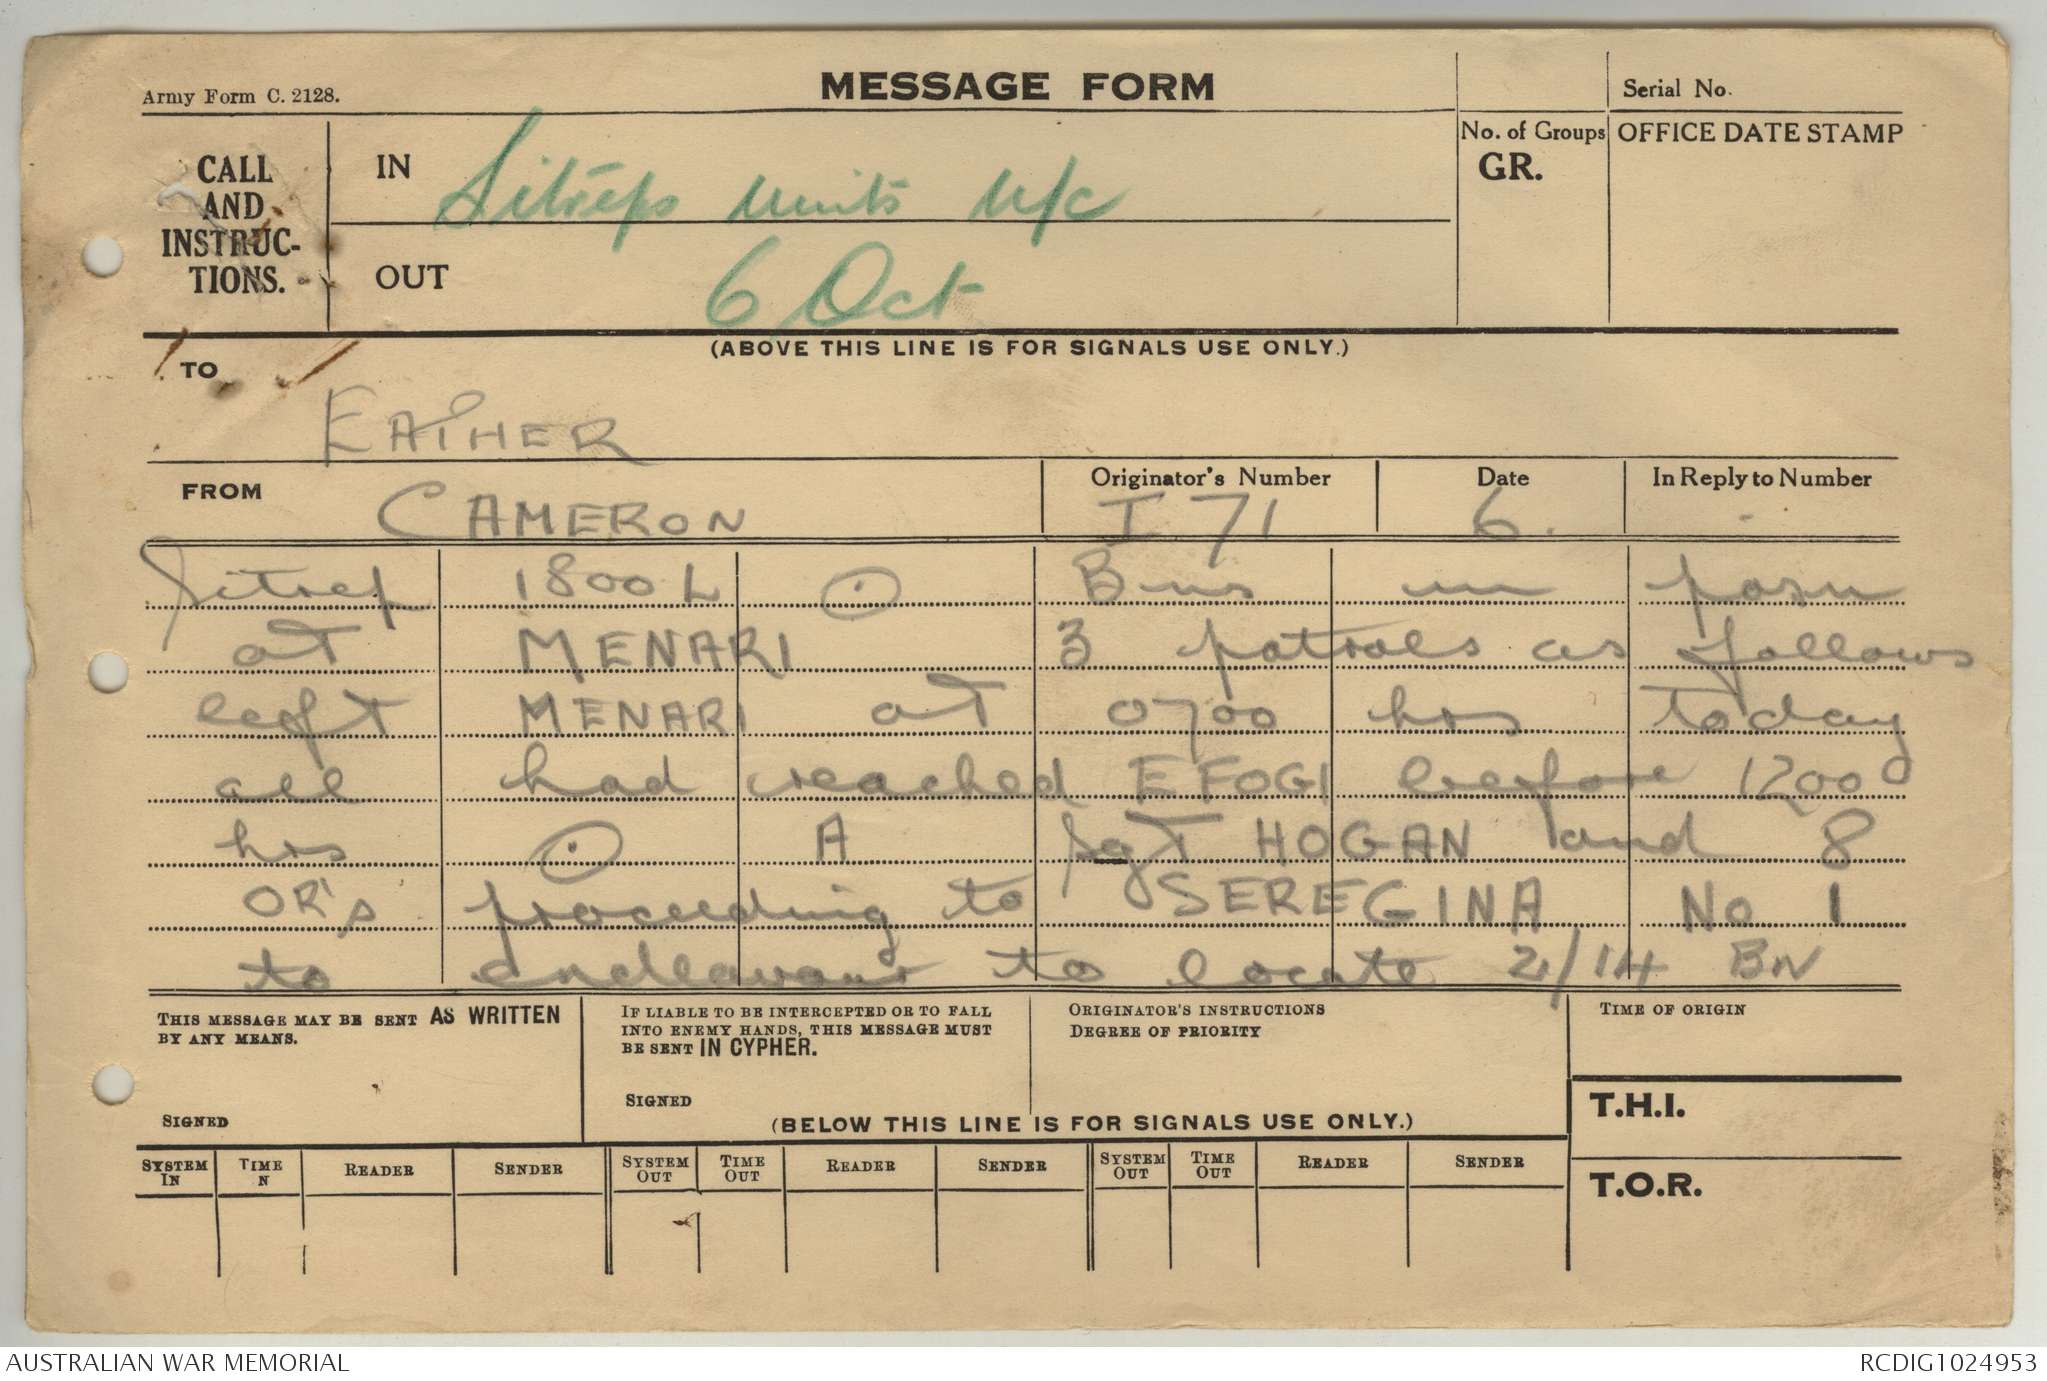 Army Form C. 2128.
MESSAGE FORM
Serial No.
CALL
AND
INSTRUC-
TIONS.
IN
Sitreps units u/c
OUT
6 Oct
No. of Groups
GR.
OFFICE DATE STAMP
(ABOVE THIS LINE IS FOR SIGNALS USE ONLY.)
TO
EATHER
FROM
CAMERON
Originator's Number
I 71
Date
6.
In Reply to Number
-
Sitrep 1800 L ⊙ Bns in posn
at MENARI 3 patrols as follows
left MENARI at 0700 hrs today
all had reached EFOGI before 1200
hrs ⊙ A Sgt HOGAN and 8
OR's proceeding to SEREGINA No 1
to endeavour to locate 2/14 BN
THIS MESSAGE MAY BE SENT AS WRITTEN
BY ANY MEANS.
SIGNED
IF LIABLE TO BE INTERCEPTED OR TO FALL
INTO ENEMY HANDS, THIS MESSAGE MUST
BE SENT IN CYPHER.
SIGNED
ORIGINATOR'S INSTRUCTIONS
DEGREE OF PRIORITY
TIME OF ORIGIN
(BELOW THIS LINE IS FOR SIGNALS USE ONLY.)
T.H.I.
T.O.R.
SYSTEM IN TIME N READER SENDER SYSTEM OUT TIME OUT READER SENDER SYSTEM OUT TIME OUT READER SENDER
AUSTRALIAN WAR MEMORIAL
RCDIG1024953